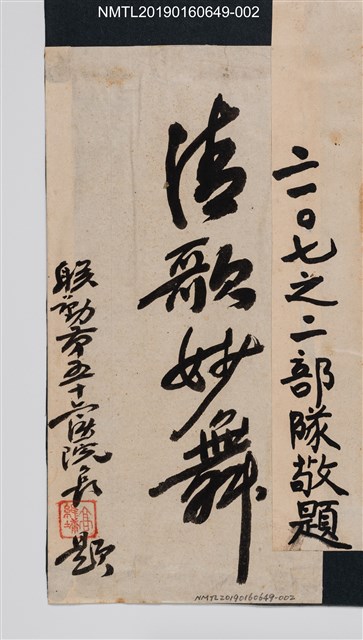 NMTL20190160649-002
二一〇七之二部隊敬題
清歌妙舞
聯勤第五十六医院長
題
NMTL20190160649-002